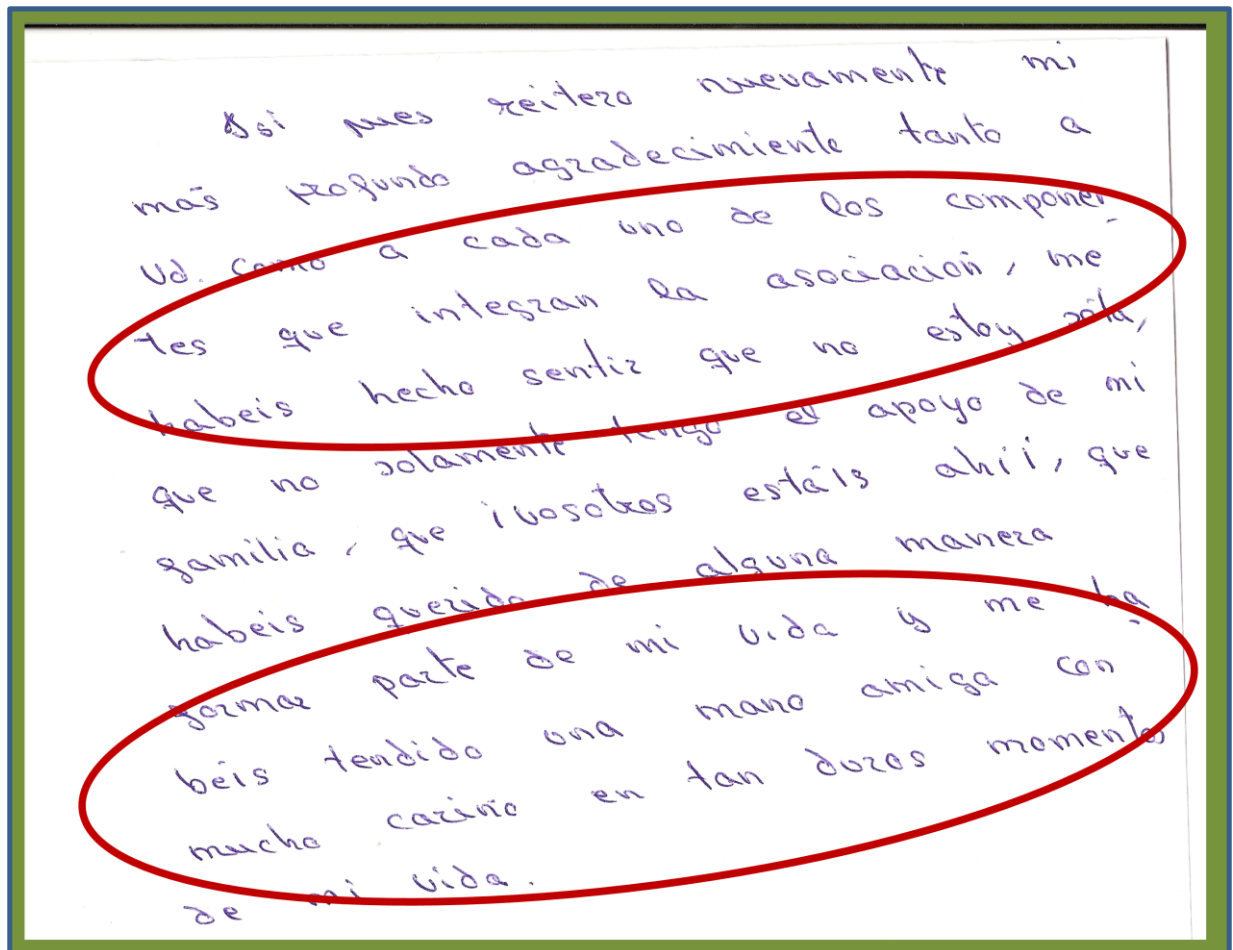 Asi pues reitero nuevamente mi
más profundo agradecimiento tanto a
Ud. como a cada uno de los componen_
tes que integran la asociación, me
habeis hecho sentir que no estoy sóla,
que no solamente tengo el apoyo de mi
familia, que ¡vosotros estáis ahí!, que
habeis querido de alguna manera
formar parte de mi vida y me ha_
béis tendido una mano amiga con
mucho cariño en tan duros momentos
de mi vida.